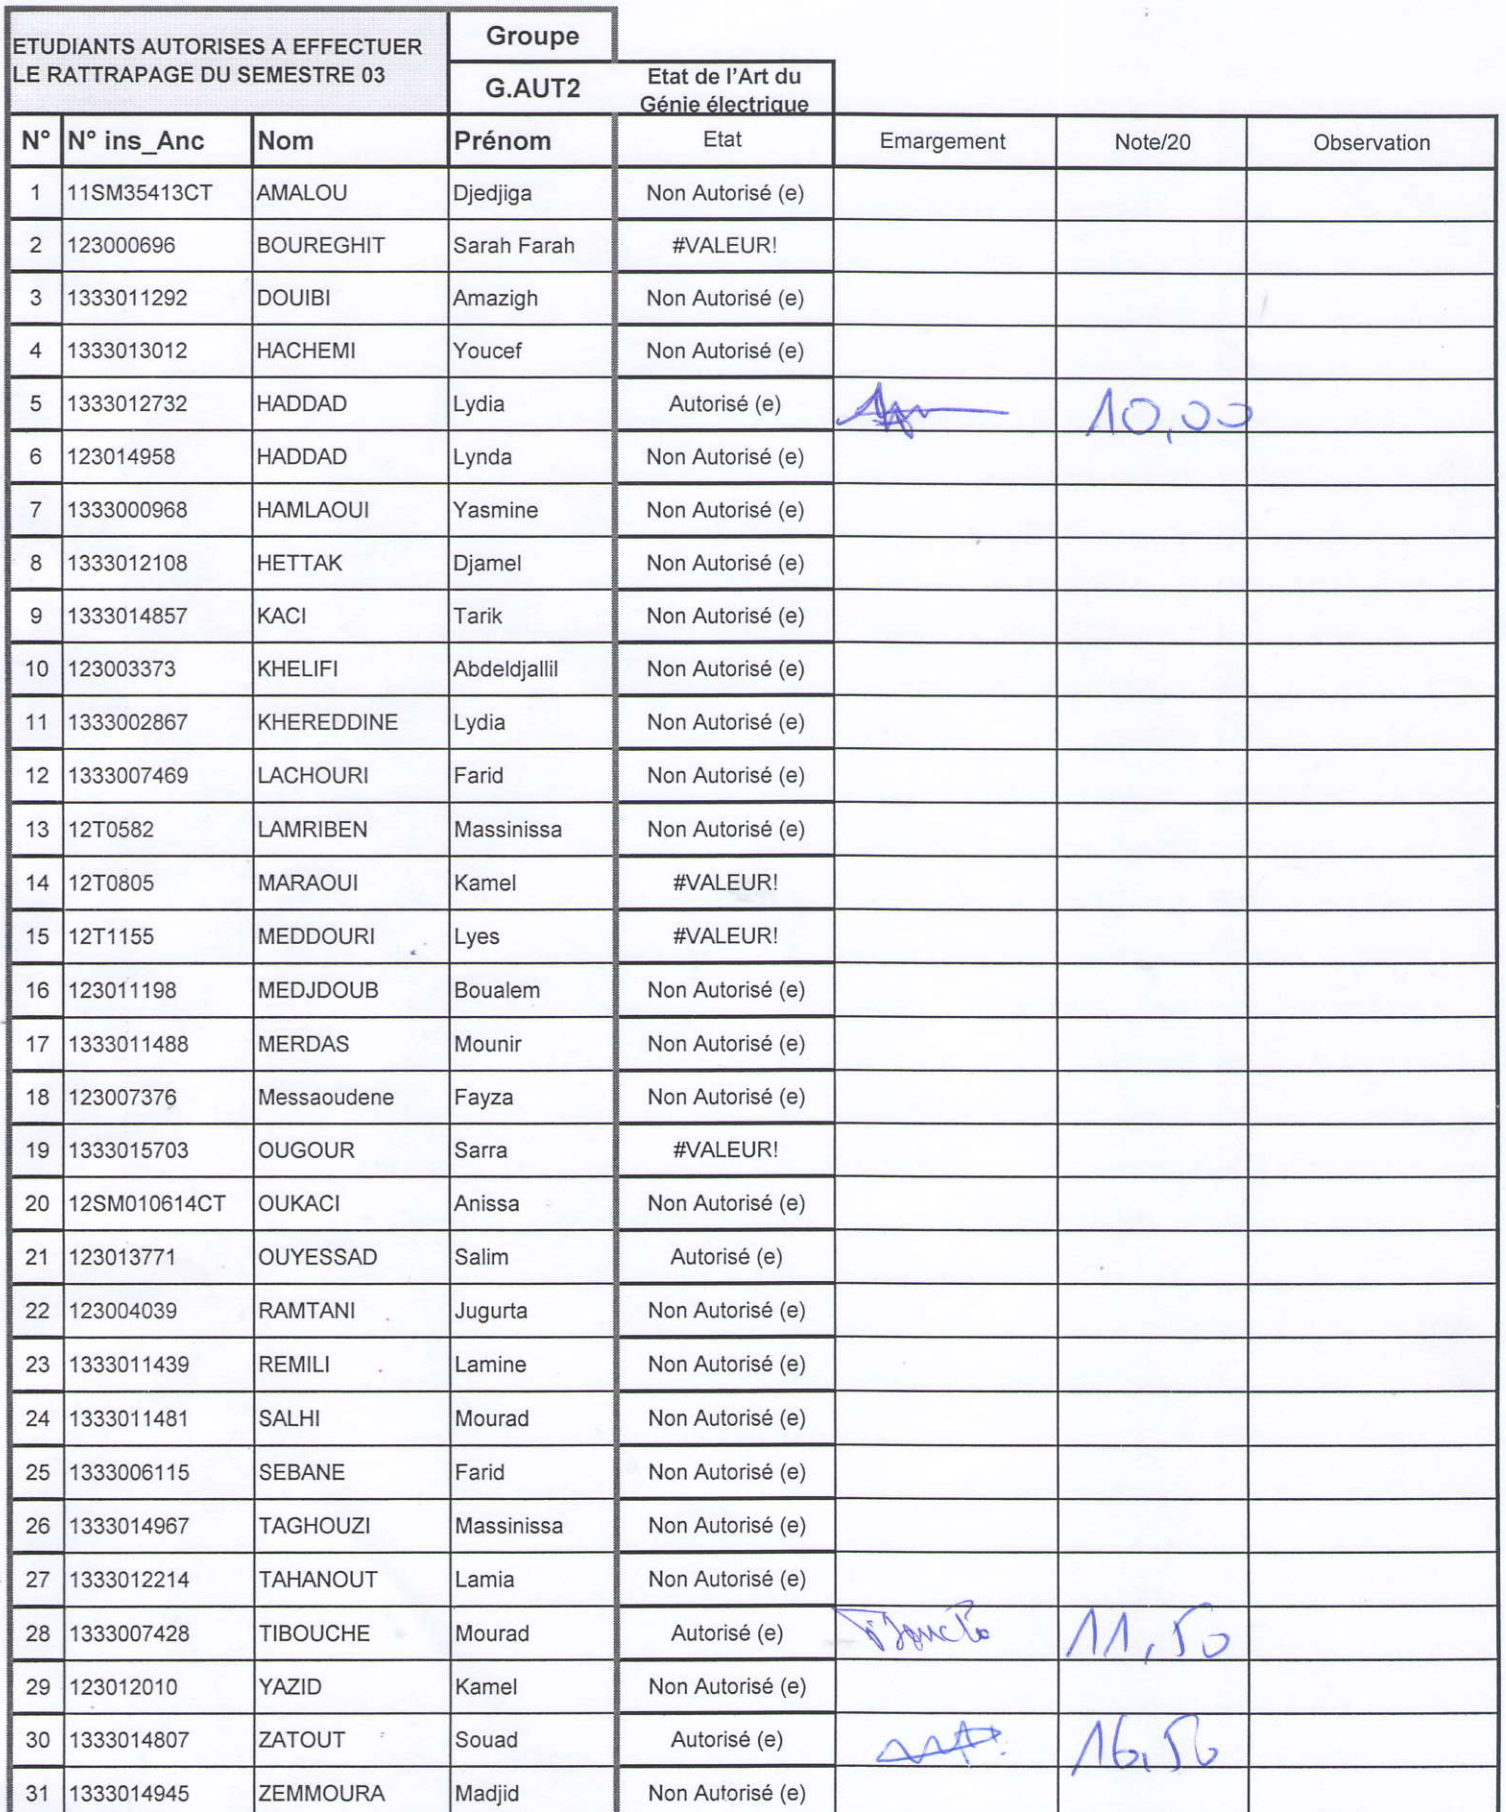 ETUDIANTS AUTORISES A EFFECTUER
LE RATTRAPAGE DU SEMESTRE 03
Groupe
G.AUT2
Etat de l'Art du
Génie électrique
N° N° ins_Anc Nom Prénom Etat Emargement Note/20 Observation
1 11SM35413CT AMALOU Djedjiga Non Autorisé (e)
2 123000696 BOUREGHIT Sarah Farah #VALEUR!
3 1333011292 DOUIBI Amazigh Non Autorisé (e)
4 1333013012 HACHEMI Youcef Non Autorisé (e)
5 1333012732 HADDAD Lydia Autorisé (e) 10,00
6 123014958 HADDAD Lynda Non Autorisé (e)
7 1333000968 HAMLAOUI Yasmine Non Autorisé (e)
8 1333012108 HETTAK Djamel Non Autorisé (e)
9 1333014857 KACI Tarik Non Autorisé (e)
10 123003373 KHELIFI Abdeldjallil Non Autorisé (e)
11 1333002867 KHEREDDINE Lydia Non Autorisé (e)
12 1333007469 LACHOURI Farid Non Autorisé (e)
13 12T0582 LAMRIBEN Massinissa Non Autorisé (e)
14 12T0805 MARAOUI Kamel #VALEUR!
15 12T1155 MEDDOURI Lyes #VALEUR!
16 123011198 MEDJDOUB Boualem Non Autorisé (e)
17 1333011488 MERDAS Mounir Non Autorisé (e)
18 123007376 Messaoudene Fayza Non Autorisé (e)
19 1333015703 OUGOUR Sarra #VALEUR!
20 12SM010614CT OUKACI Anissa Non Autorisé (e)
21 123013771 OUYESSAD Salim Autorisé (e)
22 123004039 RAMTANI Jugurta Non Autorisé (e)
23 1333011439 REMILI Lamine Non Autorisé (e)
24 1333011481 SALHI Mourad Non Autorisé (e)
25 1333006115 SEBANE Farid Non Autorisé (e)
26 1333014967 TAGHOUZI Massinissa Non Autorisé (e)
27 1333012214 TAHANOUT Lamia Non Autorisé (e)
28 1333007428 TIBOUCHE Mourad Autorisé (e) 11,50
29 123012010 YAZID Kamel Non Autorisé (e)
30 1333014807 ZATOUT Souad Autorisé (e) 16,50
31 1333014945 ZEMMOURA Madjid Non Autorisé (e)